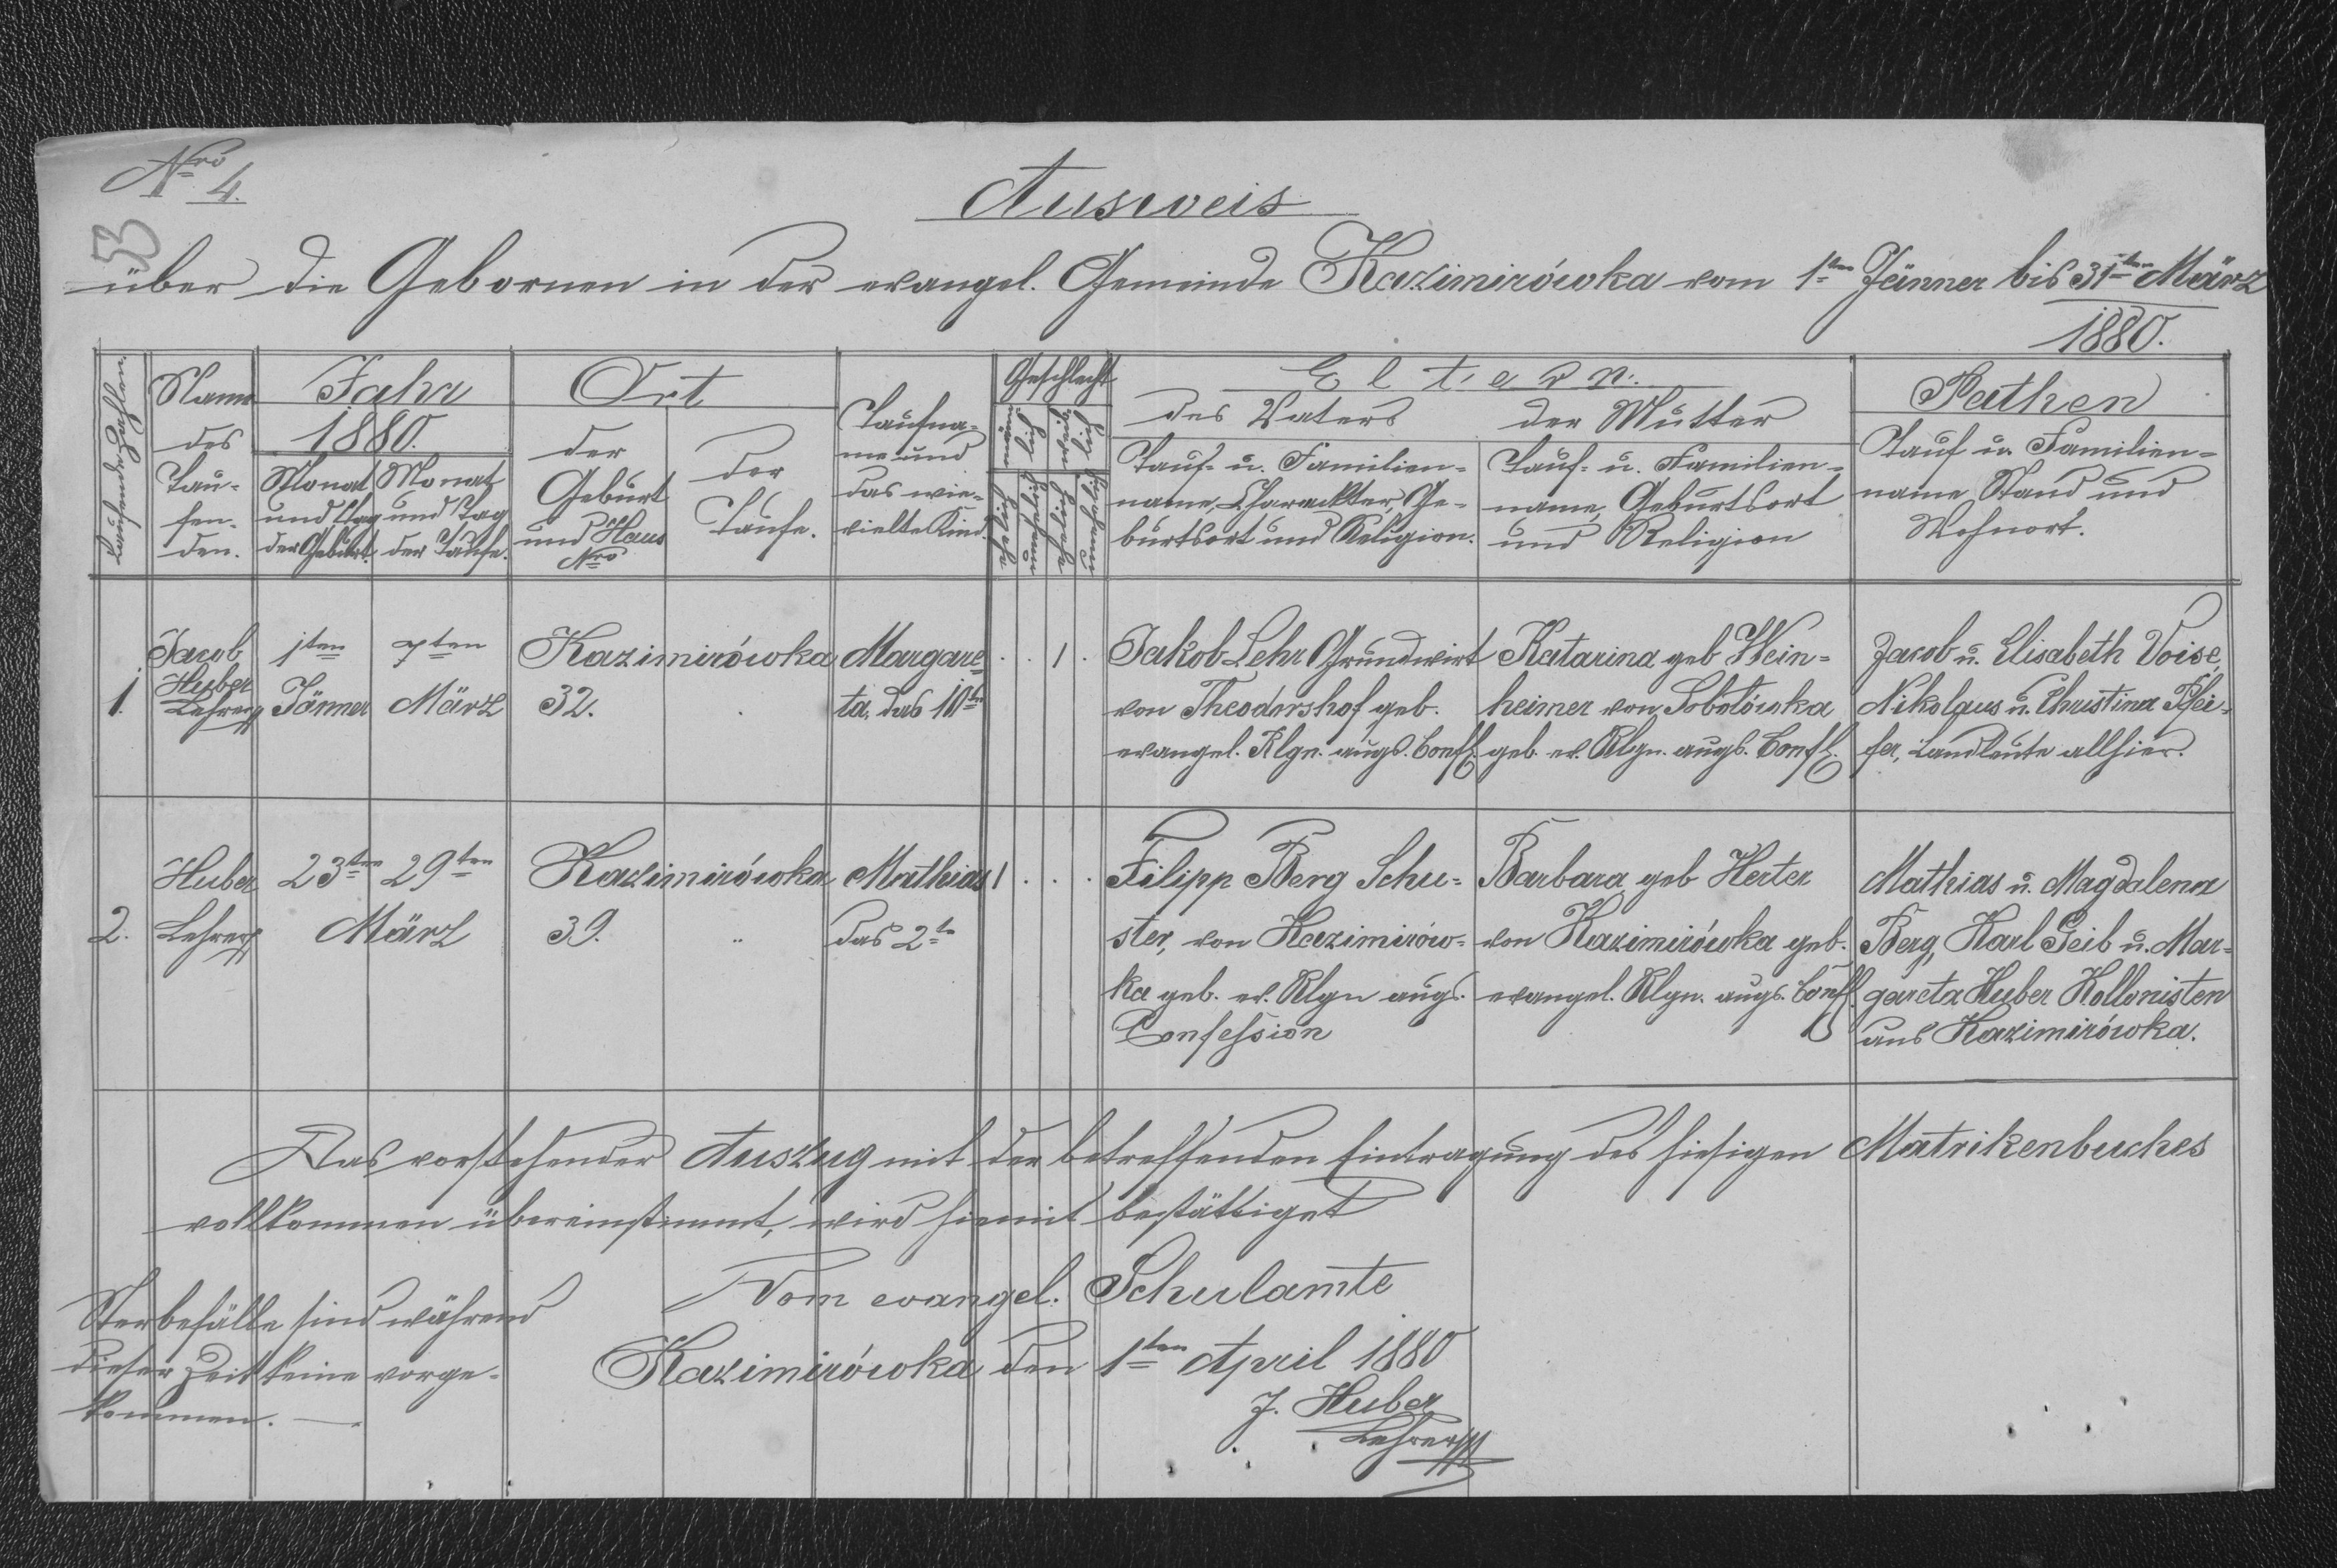 Nro 4.
53
Ausweis
über die Gebornen in der evangel. Gemeinde Kazimirówka vom 1ten Jänner bis 31ten März
1880.
Laufende Zahlen.
Name des Taufenden.
Jahr 1880.
Monat und Tag der Geburt.
Monat und Tag der Taufe.
Ort
der Geburt und Haus Nro
der Taufe.
Taufname und das wievielte Kind.
Geschlecht
männlich
weiblich
Eltern.
des Vaters
Tauf- u. Familien-
name, Charackter, Ge-
burtsort und Religion.
der Mutter
Tauf- u. Familien-
name, Geburtsort
und Religion
Pathen
Tauf u. Familien-
name, Stand und
Wohnort.
1.
Jacob
Huber
Lehrer
1ten
Jänner
7ten
März
Kazimirówka
32.
Margare-
ta, das 10te
1
Jakob Lehr Grundwirt
von Theodorshof geb.
evangel. Rlgn. augs. Conf.
Katarina geb Wein-
heimer von Sobotówka
geb. ev. Rlgn. augs. Conf.
Jacob u. Elisabeth Voise,
Nikolaus u. Christina Pfei-
fer, Landleute allhier.
2.
Huber
Lehrer
23ten 29ten
März
Kazimirówka
39. "
Mathias
das 2te
1
Filipp Berg Schu-
ster, von Kazimirów-
ka geb. ev. Rlgn augs.
Confession
Barbara geb Herter
von Kazimirówka geb.
evangel. Rlgn. augs. Conf.
Mathias u. Magdalena
Berg, Karl Geib u. Mar-
gareta Huber Kollonisten
aus Kazimirówka.
Das vorstehender Auszug mit der betreffenden Eintragung des hiesigen Matrikenbuches
vollkommen übereinstimmt, wird hiemit bestättiget
Vom evangel. Schulamte
Kazimirówka den 1ten April 1880
J. Huber
Lehrer
Sterbefälle sind während
dieser Zeit keine vorge-
kommen. —.